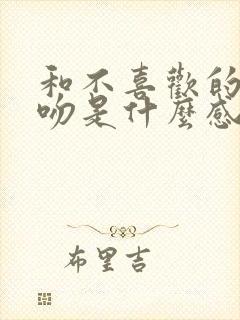 和不喜歡的
吻是什麼感
布里吉